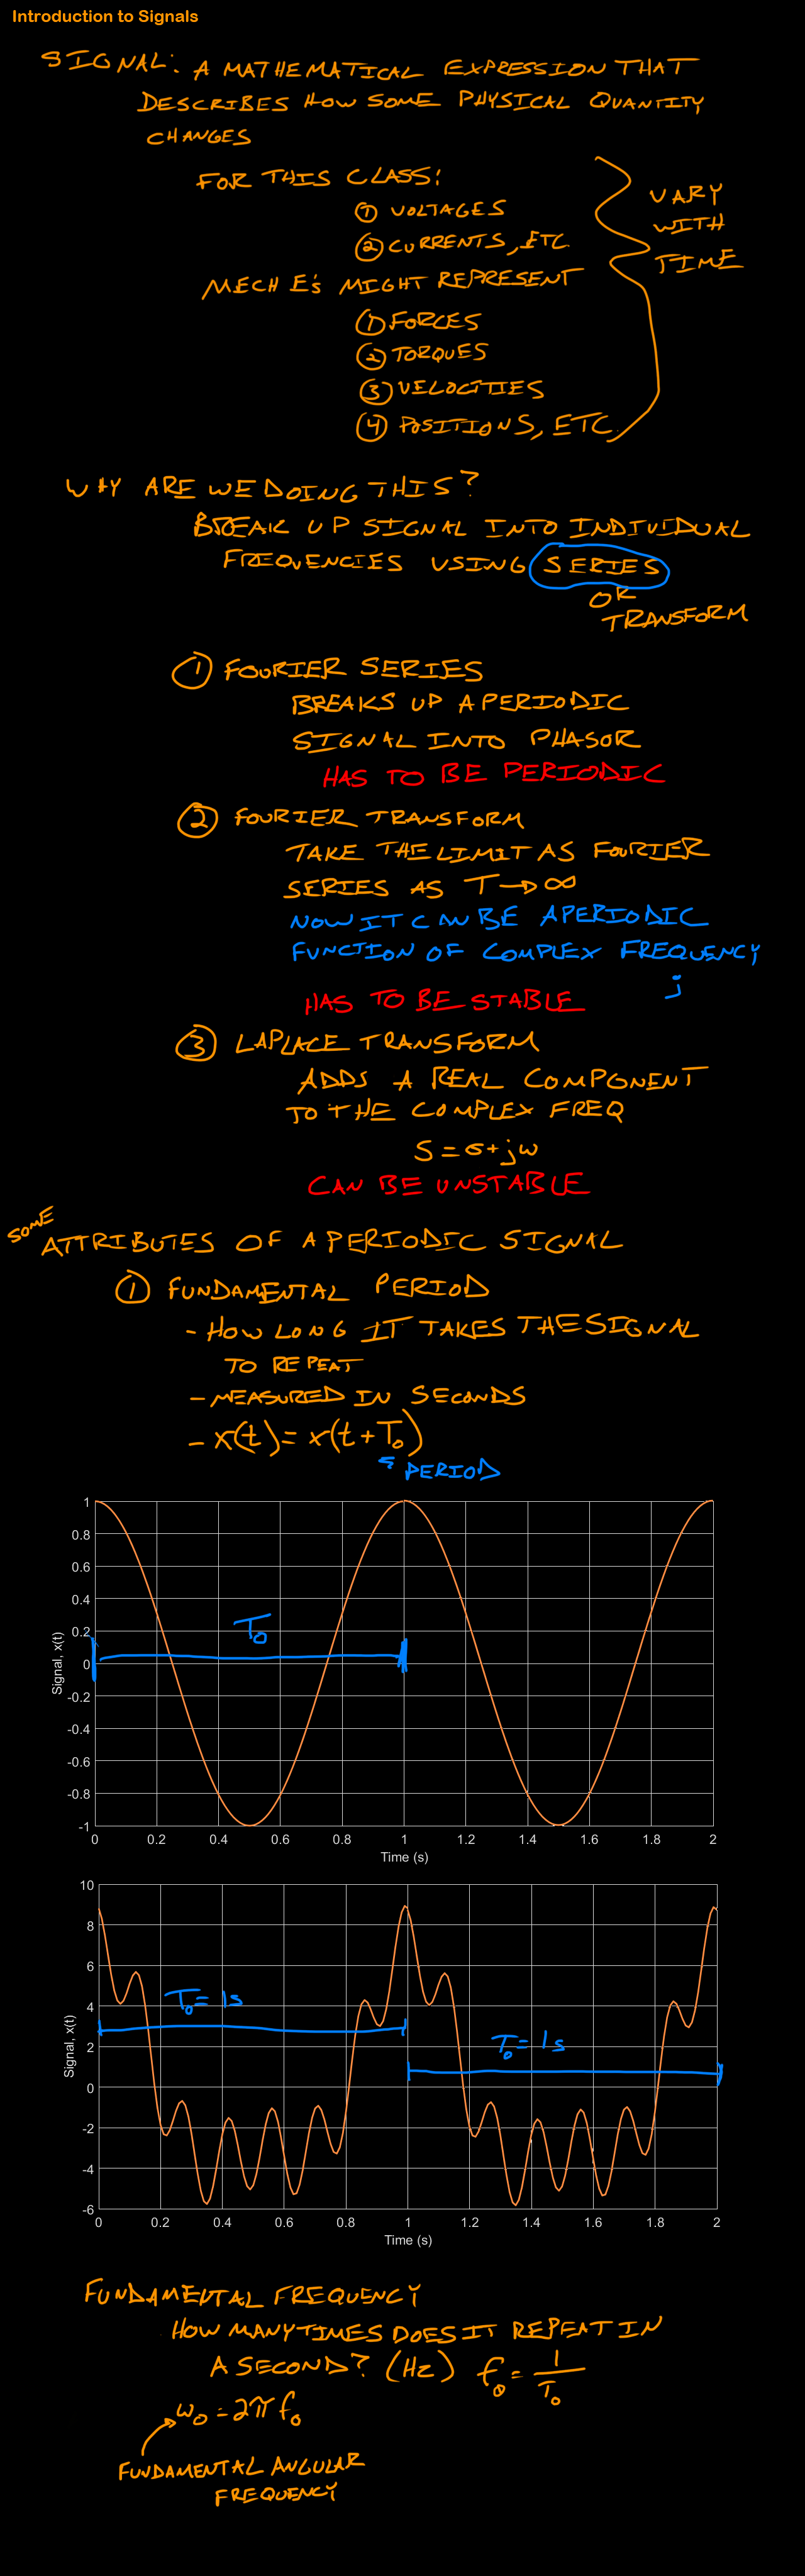 Introduction to Signals
SIGNAL: A MATHEMATICAL EXPRESSION THAT
DESCRIBES HOW SOME PHYSICAL QUANTITY
CHANGES
FOR THIS CLASS:
① VOLTAGES
② CURRENTS, ETC
MECH E's MIGHT REPRESENT
① FORCES
② TORQUES
③ VELOCITIES
④ POSITIONS, ETC.
VARY
WITH
TIME
WHY ARE WE DOING THIS?
BREAK UP SIGNAL INTO INDIVIDUAL
FREQUENCIES USING SERIES
OR
TRANSFORM
① FOURIER SERIES
BREAKS UP A PERIODIC
SIGNAL INTO PHASOR
HAS TO BE PERIODIC
② FOURIER TRANSFORM
TAKE THE LIMIT AS FOURIER
SERIES AS T→∞
NOW IT CAN BE APERIODIC
FUNCTION OF COMPLEX FREQUENCY
j
HAS TO BE STABLE
③ LAPLACE TRANSFORM
ADDS A REAL COMPONENT
TO THE COMPLEX FREQ
S = σ + jω
CAN BE UNSTABLE
SOME
ATTRIBUTES OF A PERIODIC SIGNAL
① FUNDAMENTAL PERIOD
- HOW LONG IT TAKES THE SIGNAL
TO REPEAT
- MEASURED IN SECONDS
- x(t) = x(t + T₀)
PERIOD
1
0.8
0.6
0.4
0.2
0
-0.2
-0.4
-0.6
-0.8
-1
Signal, x(t)
T₀
0 0.2 0.4 0.6 0.8 1 1.2 1.4 1.6 1.8 2
Time (s)
10
8
6
4
2
0
-2
-4
-6
Signal, x(t)
T₀ = 1s
T₀ = 1s
0 0.2 0.4 0.6 0.8 1 1.2 1.4 1.6 1.8 2
Time (s)
FUNDAMENTAL FREQUENCY
HOW MANY TIMES DOES IT REPEAT IN
A SECOND? (Hz) f₀ = 1/T₀
ω₀ = 2π f₀
FUNDAMENTAL ANGULAR
FREQUENCY